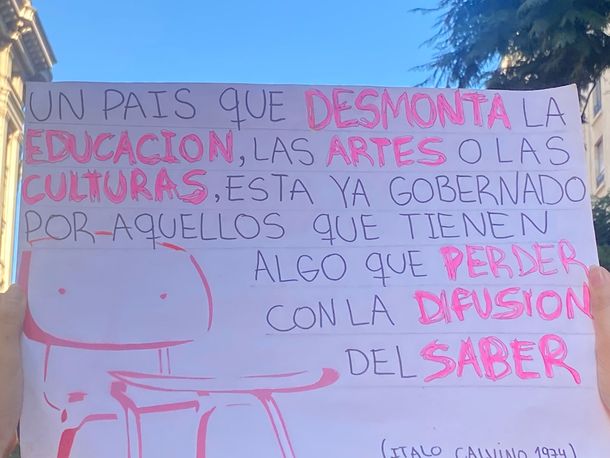 UN PAIS QUE DESMONTA LA
EDUCACION, LAS ARTES O LAS
CULTURAS, ESTA YA GOBERNADO
POR AQUELLOS QUE TIENEN
ALGO QUE PERDER
CON LA DIFUSION
DEL SABER
(ITALO CALVINO 1974)